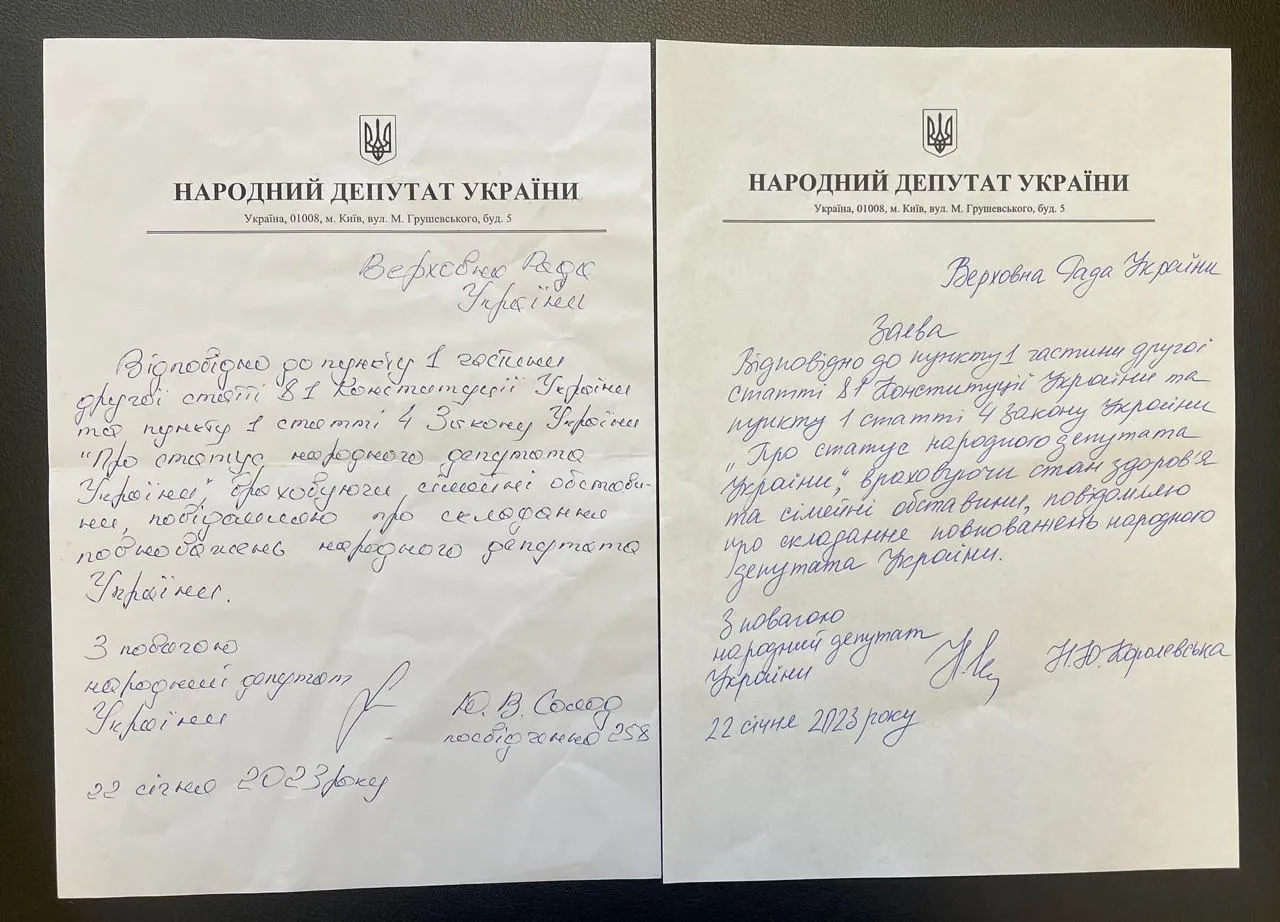 НАРОДНИЙ ДЕПУТАТ УКРАЇНИ
Україна, 01008, м. Київ, вул. М. Грушевського, буд. 5
Верховна Рада
України
Відповідно до пункту 1 частини
другої статті 81 Конституції України
та пункту 1 статті 4 Закону України
"Про статус народного депутата
України", враховуючи, сімейні обстави-
ни, повідомляю про складання
повноважень народного депутата
України.
З повагою
народний депутат
України
Ю. В. Солод
посвідчення 258
22 січня 2023 року
НАРОДНИЙ ДЕПУТАТ УКРАЇНИ
Україна, 01008, м. Київ, вул. М. Грушевського, буд. 5
Верховна Рада України
Заява
Відповідно до пункту 1 частини другої
статті 81 Конституції України та
пункту 1 статті 4 Закону України
„Про статус народного депутата
України", враховуючи стан здоров'я
та сімейні обставини, повідомляю
про складання повноважень народного
депутата України.
З повагою
народний депутат
України
Н.Ю. Королевська
22 січня 2023 року